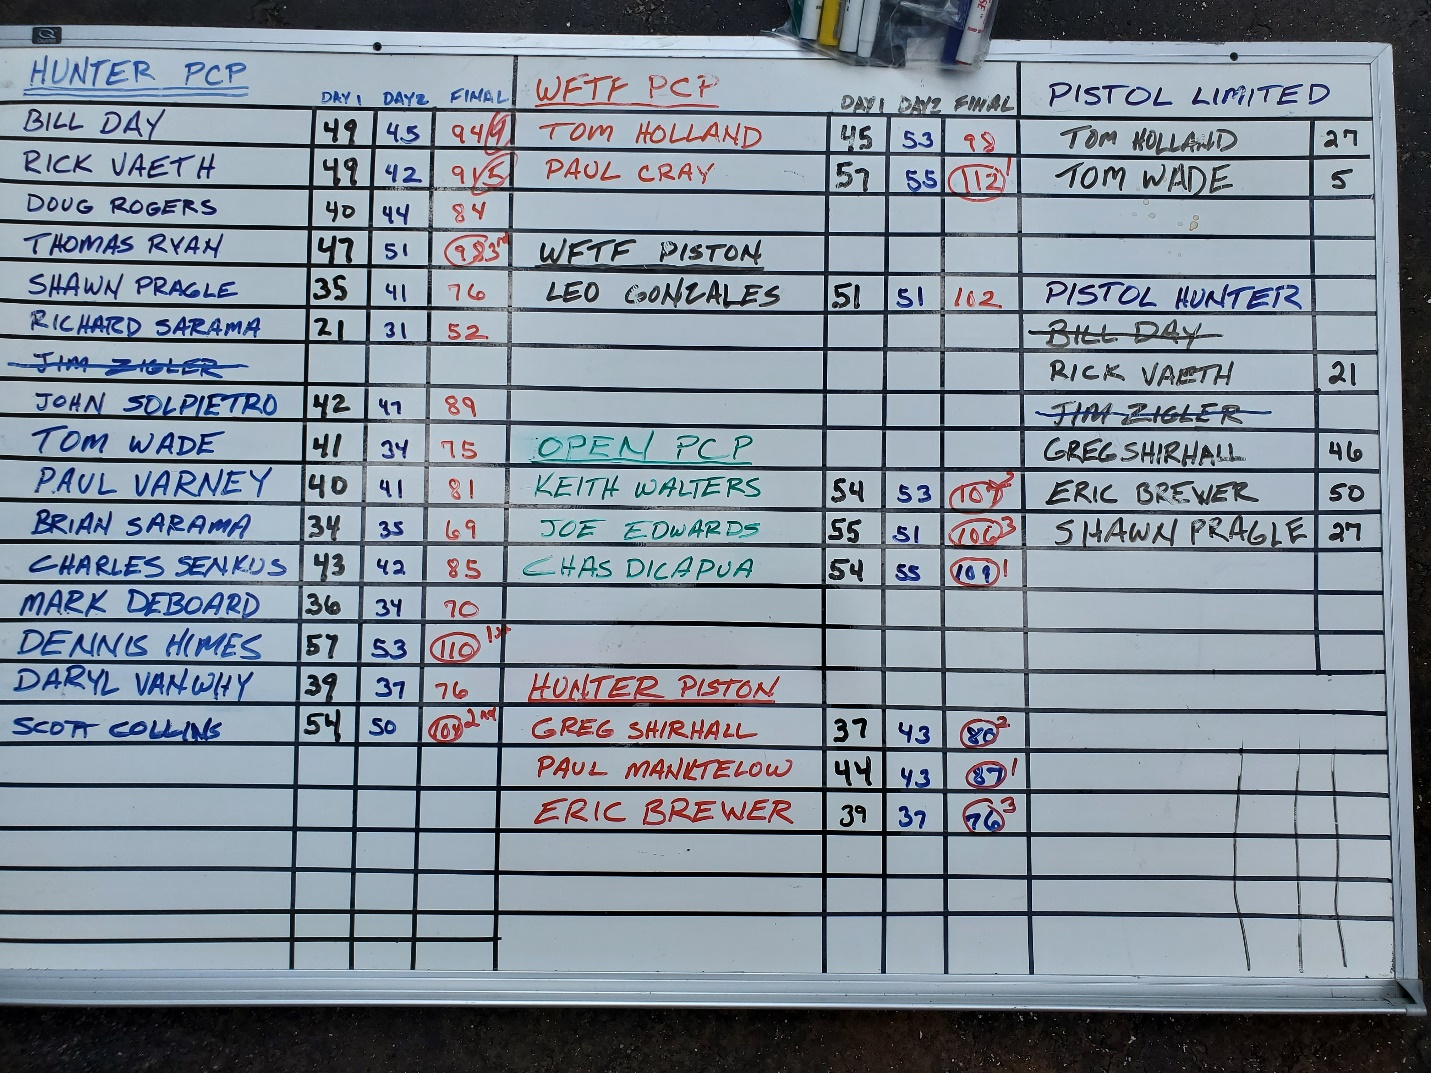 HUNTER PCP
DAY 1 DAY 2 FINAL
BILL DAY 49 45 94 4
RICK VAETH 49 42 91 5
DOUG ROGERS 40 44 84
THOMAS RYAN 47 51 98 3rd
SHAWN PRAGLE 35 41 76
RICHARD SARAMA 21 31 52
JIM ZIGLER
JOHN SOLPIETRO 42 47 89
TOM WADE 41 34 75
PAUL VARNEY 40 41 81
BRIAN SARAMA 34 35 69
CHARLES SENKUS 43 42 85
MARK DEBOARD 36 34 70
DENNIS HIMES 57 53 110 1st
DARYL VANWHY 39 37 76
SCOTT COLLINS 54 50 104 2nd
WFTF PCP
DAY 1 DAY 2 FINAL
TOM HOLLAND 45 53 98
PAUL CRAY 57 55 112 1
WFTF PISTON
LEO GONZALES 51 51 102
OPEN PCP
KEITH WALTERS 54 53 107 2
JOE EDWARDS 55 51 106 3
CHAS DICAPUA 54 55 109 1
HUNTER PISTON
GREG SHIRHALL 37 43 80 2
PAUL MANKTELOW 44 43 87 1
ERIC BREWER 39 37 76 3
PISTOL LIMITED
TOM HOLLAND 27
TOM WADE 5
PISTOL HUNTER
BILL DAY
RICK VAETH 21
JIM ZIGLER
GREG SHIRHALL 46
ERIC BREWER 50
SHAWN PRAGLE 27